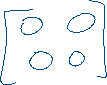 [ 0 0
0 0 ]